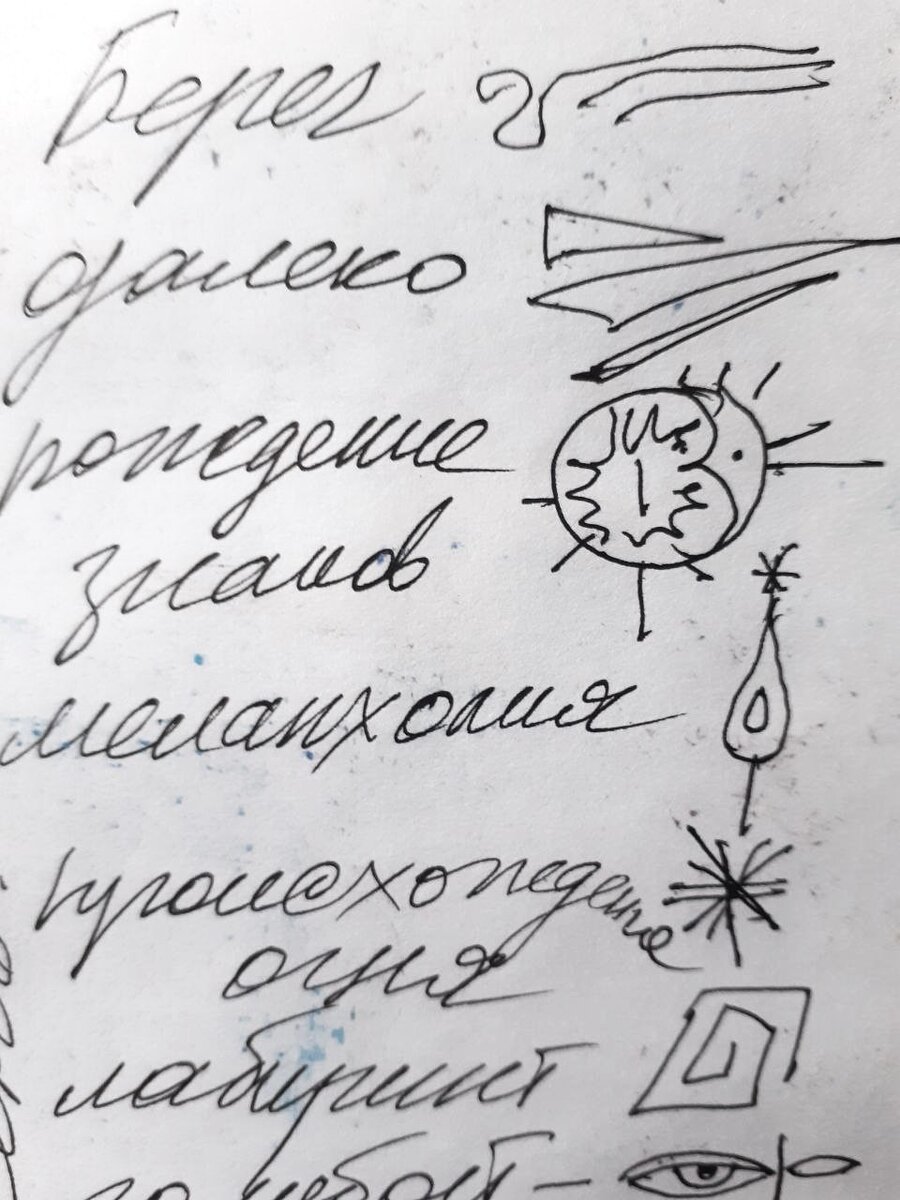 Берег
далеко
рождение
знаков
меланхолия
происхождение
огня
лабиринт